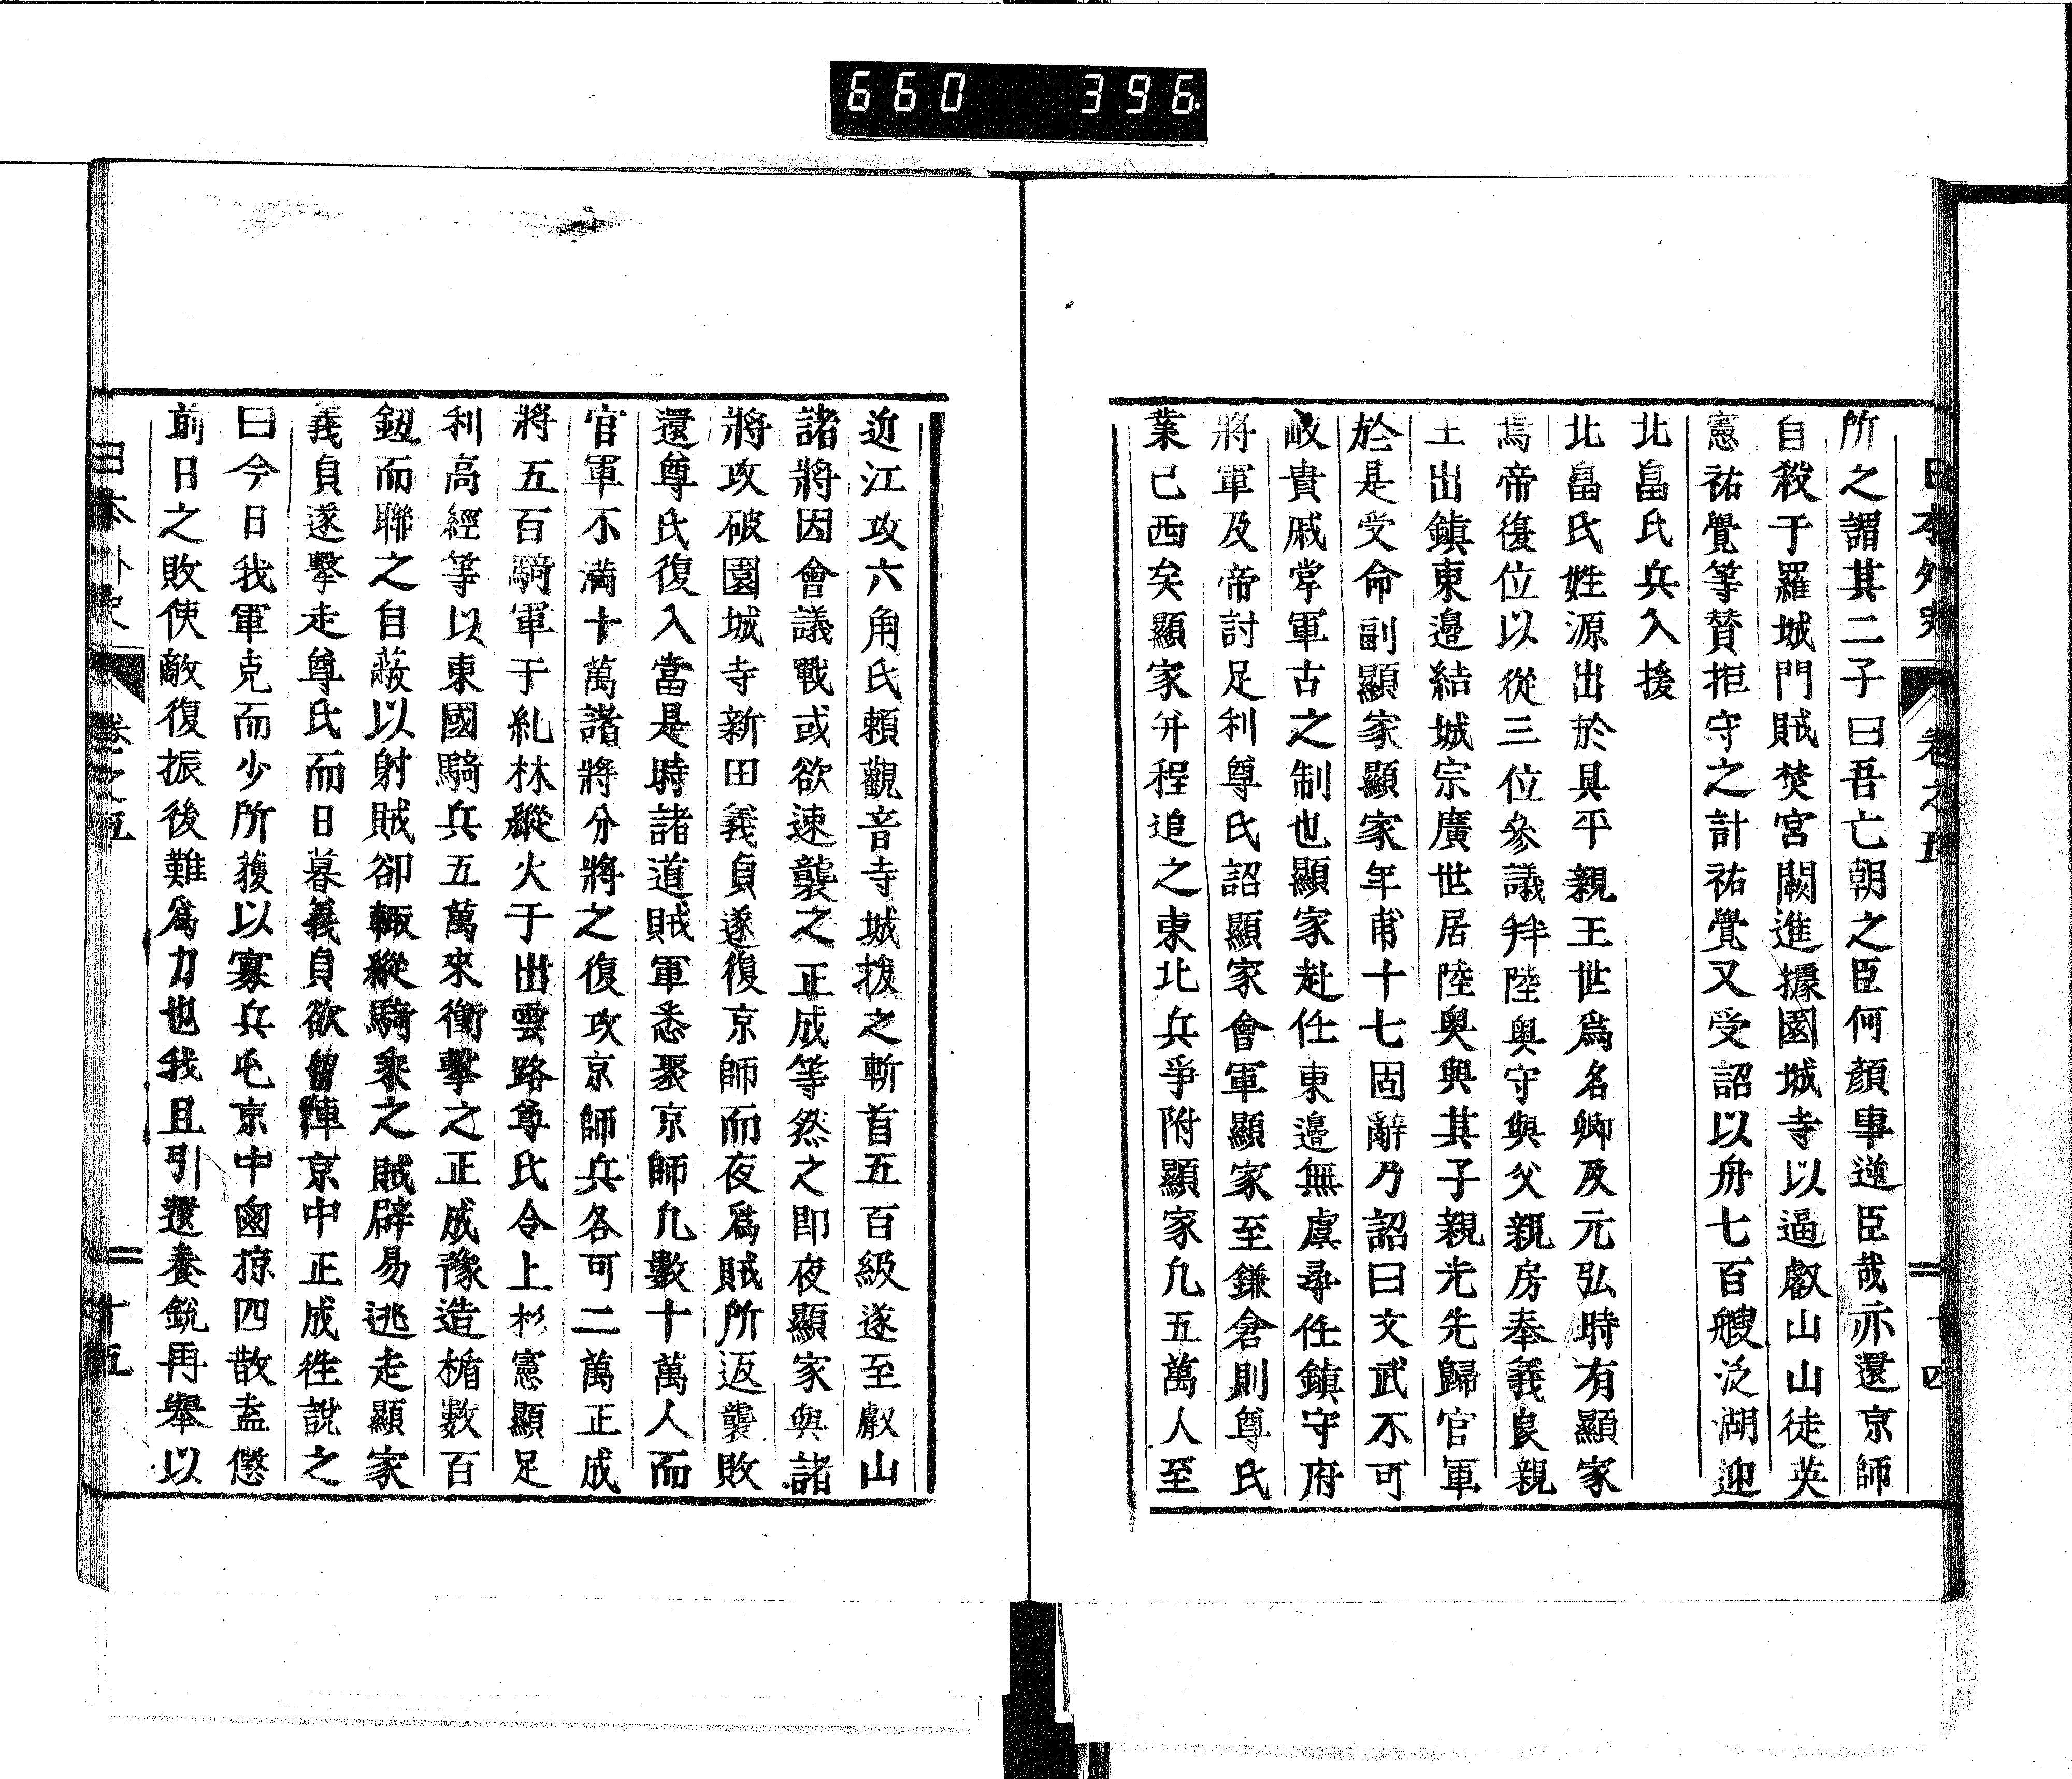 660 396
日本外史 卷之五 十四
所之謂其二子曰吾亡朝之臣何顏事逆臣哉亦還京師
自殺于羅城門賊焚宮闕進據園城寺以逼叡山山徒英
憲祐覺等賛拒守之計祐覺又受詔以舟七百艘泛湖迎
北畠氏兵入援
北畠氏姓源出於具平親王世爲名卿及元弘時有顯家
焉帝復位以從三位參議拜陸奥守與父親房奉義良親
王出鎭東邉結城宗廣世居陸奥與其子親光先歸官軍
於是受命副顯家顯家年甫十七固辭乃詔曰文武不可
岐貴戚掌軍古之制也顯家赴任東邉無虞尋任鎭守府
將軍及帝討足利尊氏詔顯家會軍顯家至鎌倉則尊氏
業已西矣顯家幷程追之東北兵爭附顯家凡五萬人至
近江攻六角氏頼觀音寺城拔之斬首五百級遂至叡山
諸將因會議戰或欲速襲之正成等然之即夜顯家與諸
將攻破園城寺新田義貞遂復京師而夜爲賊所返襲敗
還尊氏復入當是時諸道賊軍悉聚京師凡數十萬人而
官軍不滿十萬諸將分將之復攻京師兵各可二萬正成
將五百騎軍于糺林縱火于出雲路尊氏令上杉憲顯足
利高經等以東國騎兵五萬來衝擊之正成豫造楯數百
鈕而聯之自蔽以射賊卻輙縱騎乘之賊辟易逃走顯家
義貞遂擊走尊氏而日暮義貞欲留陣京中正成徃說之
曰今日我軍克而少所獲以寡兵屯京中鹵掠四散盍懲
前日之敗使敵復振後難爲力也我且引還養銳再舉以
日本外史 卷之五 十五